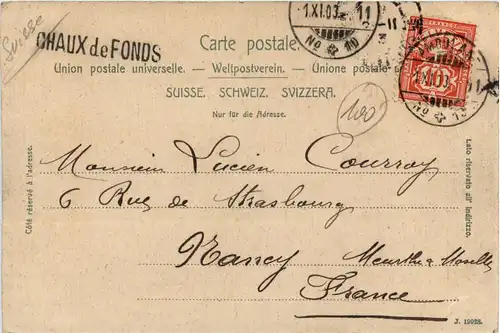 Suisse
CHAUX de FONDS
1.XI.03 11
No 10
Carte postale.
Union postale universelle. — Weltpostverein. — Unione postale
SUISSE. SCHWEIZ. SVIZZERA.
Nur für die Adresse.
100
Côté réservé à l'adresse.
Lato riservato all' indirizzo.
Monsieur Lucien Courroy
6 Rue de Strasbourg
Nancy Meurthe & Moselle
France
J. 19028.